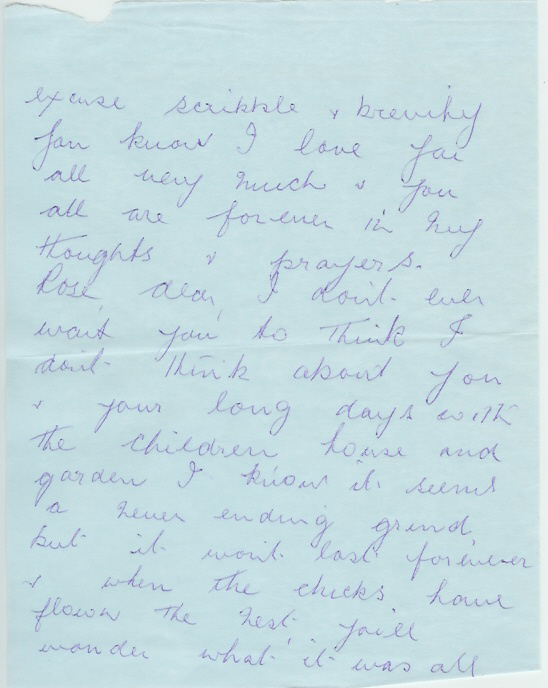 excuse scribble & brevity
You know I love you
all very much & you
all are forever in my
thoughts & prayers.
Rose, dear, I don't ever
want you to think I
don't think about you
& your long days with
the children house and
garden I know it seems
a never ending grind
but it won't last forever
& when the chicks have
flown the nest you'll
wonder what it was all